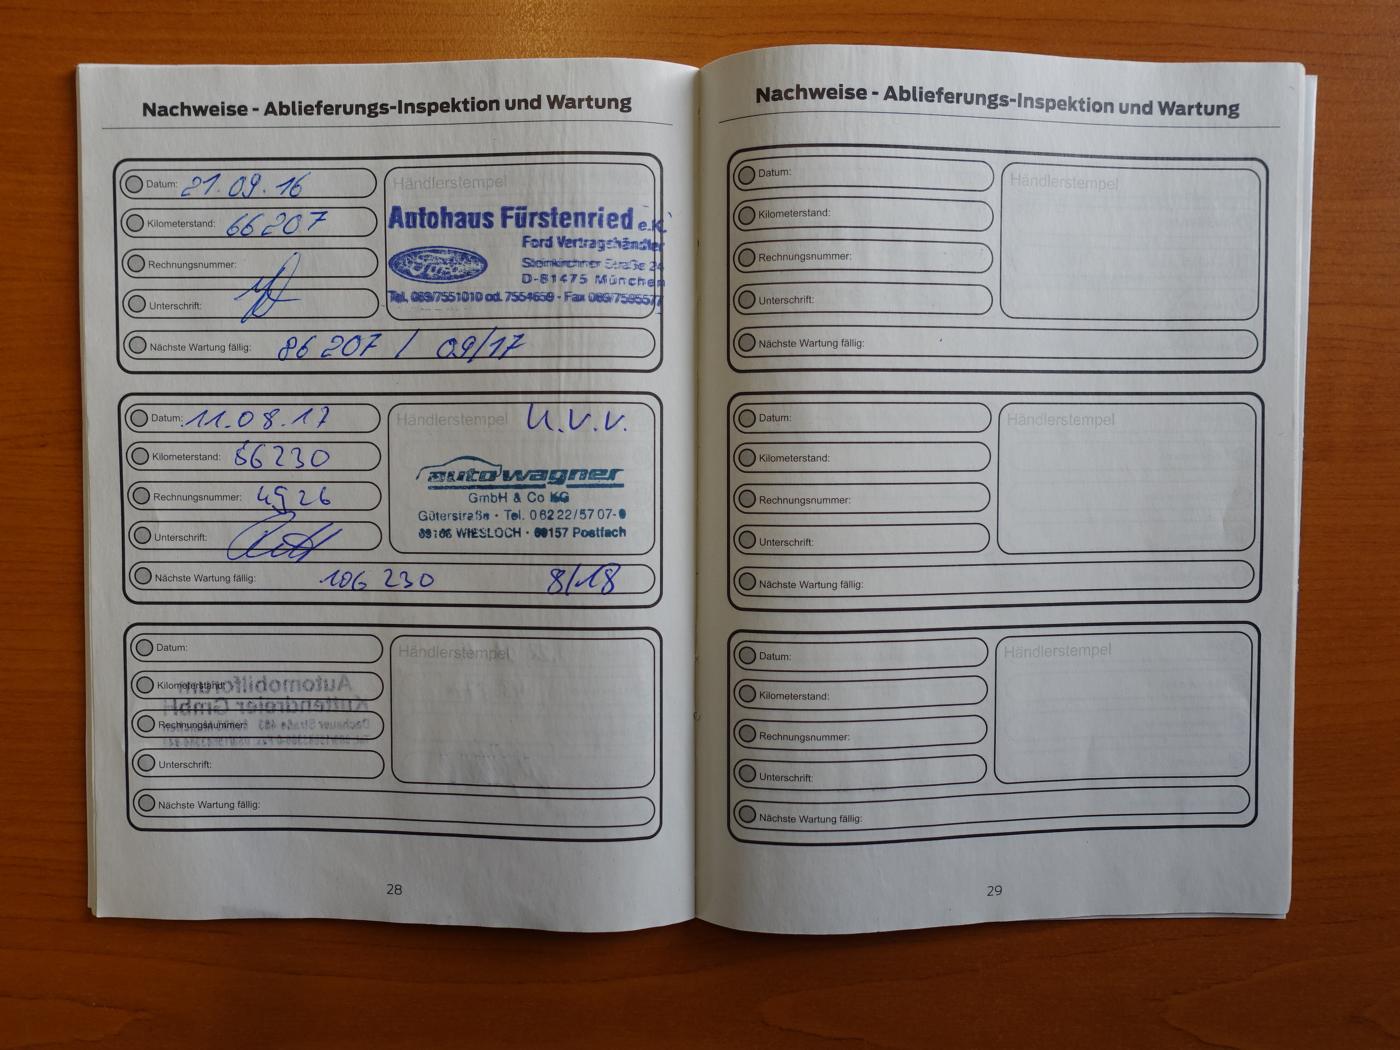 Nachweise - Ablieferungs-Inspektion und Wartung
Datum: 21.09.16
Kilometerstand: 66207
Rechnungsnummer:
Unterschrift:
Händlerstempel
Autohaus Fürstenried e.K.
Ford Vertragshändler
Ford
Steinkirchner Straße 24
D-81475 München
Tel. 089/7551010 od. 7554659 - Fax 089/7595577
Nächste Wartung fällig: 86207 / 09/17
Datum: 11.08.17
Kilometerstand: 86230
Rechnungsnummer: 4926
Unterschrift:
Händlerstempel U.V.V.
auto wagner
GmbH & Co KG
Güterstraße · Tel. 06222/5707-0
WIESLOCH · 69157 Postfach
Nächste Wartung fällig: 106 230 8/18
Datum:
Kilometerstand:
Rechnungsnummer:
Unterschrift:
Händlerstempel
Automobilforum
Kuttendreier GmbH
Nächste Wartung fällig:
28
Nachweise - Ablieferungs-Inspektion und Wartung
Datum:
Kilometerstand:
Rechnungsnummer:
Unterschrift:
Händlerstempel
Nächste Wartung fällig:
Datum:
Kilometerstand:
Rechnungsnummer:
Unterschrift:
Händlerstempel
Nächste Wartung fällig:
Datum:
Kilometerstand:
Rechnungsnummer:
Unterschrift:
Händlerstempel
Nächste Wartung fällig:
29